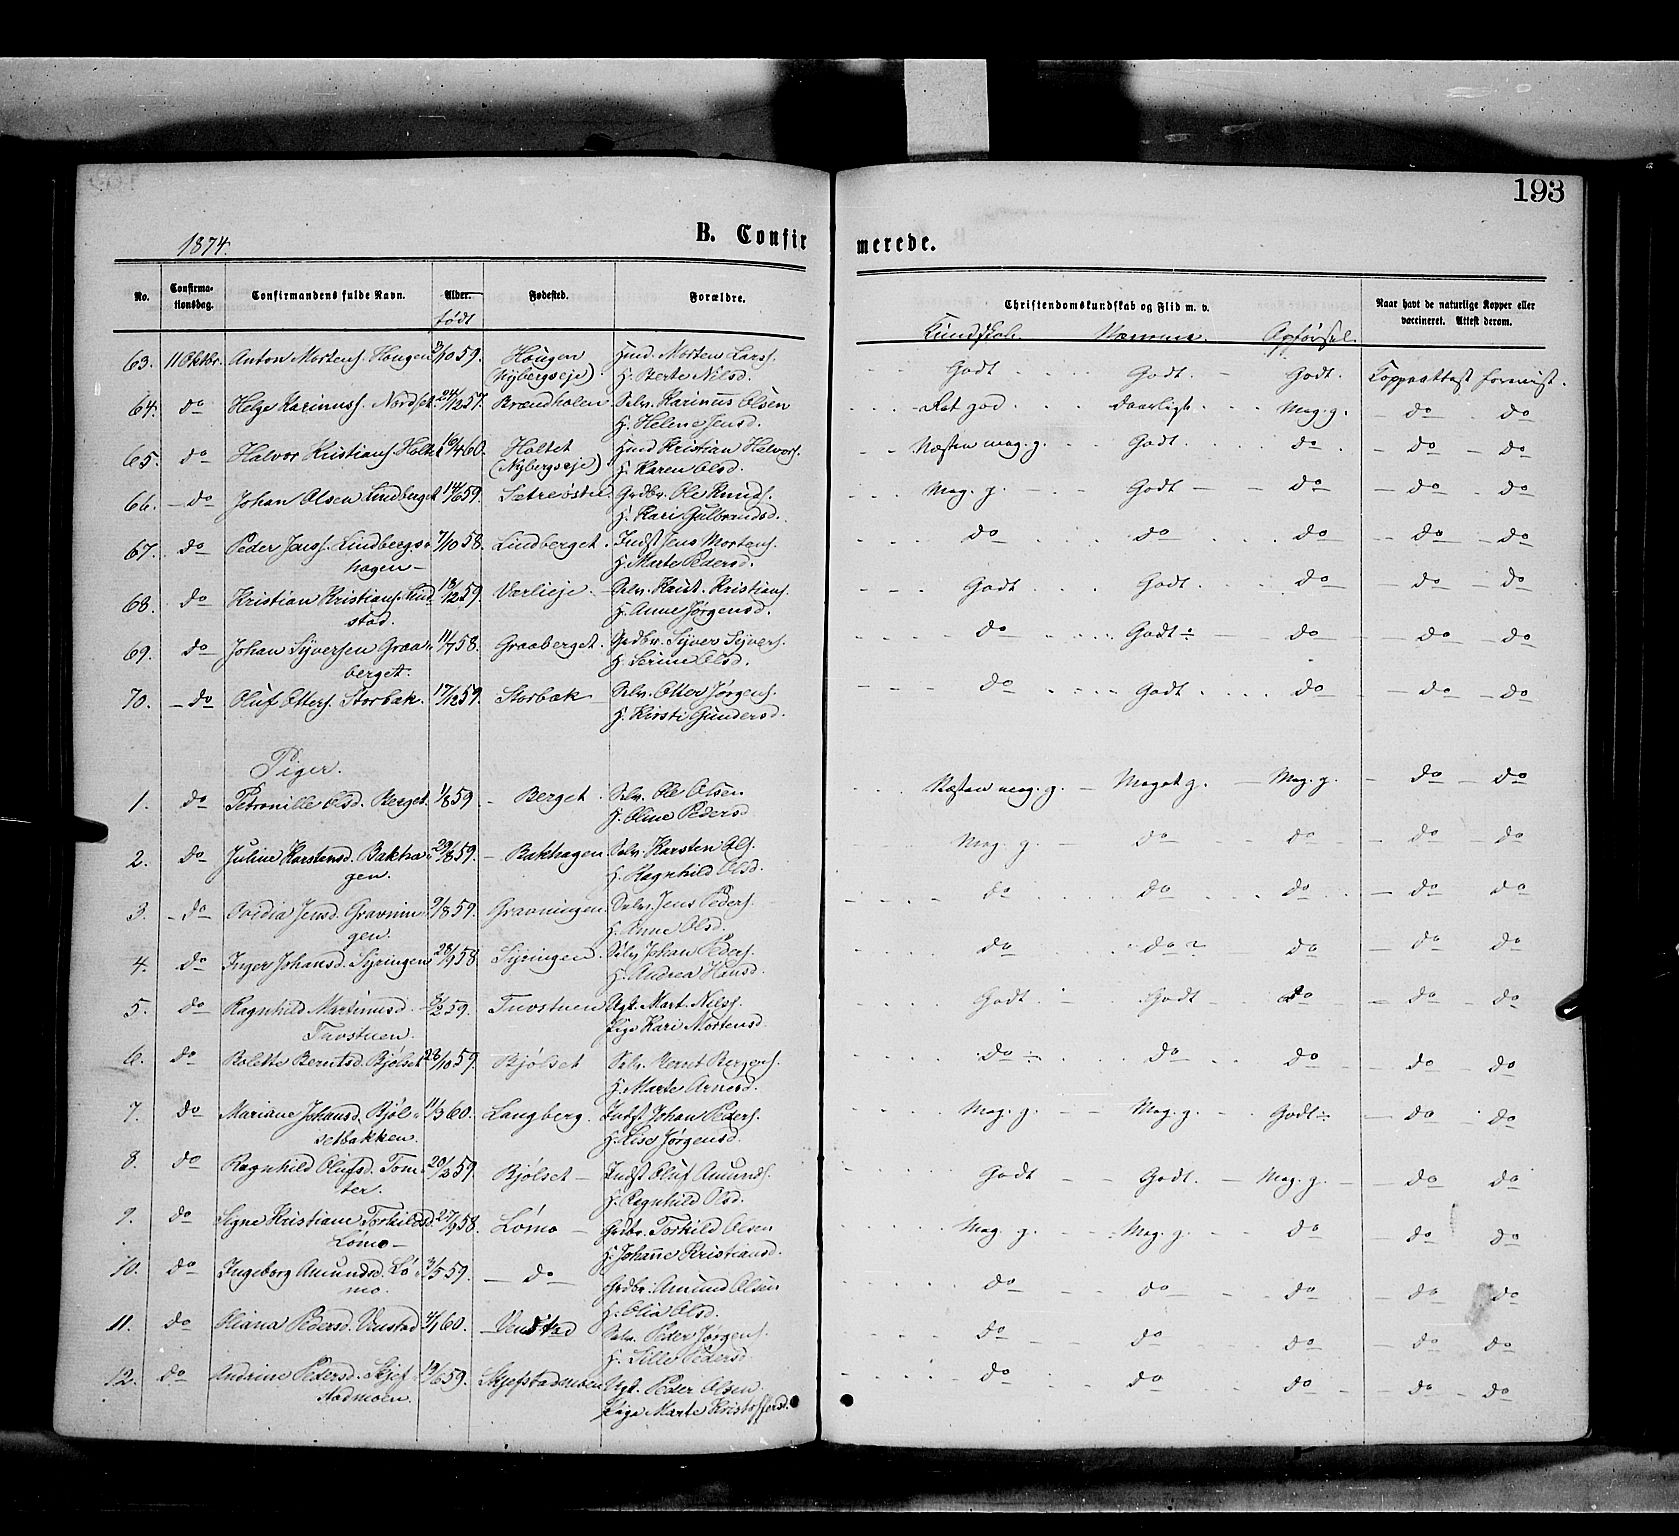 193
1874.
B. Confirmerede.
No. Confirmationsdag. Confirmandens fulde Navn. Alder. født Fødested. Forældre. Christendomskundskab og Flid m. v. Naar havt de naturlige Kopper eller vaccineret. Attest derom.
Kundskab. Nemme. Opførsel.
63. 11 Oktbr. Anton Mortens. Hougen 3/10 59. Hougen Hmd. Morten Larss. Godt Godt. Godt. Koppeattest forevist.
(Nybergseje) H. Berte Nilsd.
64. do Helge Karinuss. Nordset 24/12 57. Brændholen Selv. Karinus Olsen Ret god daarligt Meg. g. do do
H. Helene Jensd.
65. do Halvor Kristians. Holte 10/4 60. Holtet Hmd Kristian Halvors. Næsten meg. g. Godt do do do
(Nybergseje) H. Karen Olsd.
66. do Johan Olsen Lindberget 14/6 59. Grdbr. Ole Knuds. Meg. g. Godt do do do
H. Kari Gulbrandsd.
67. do Peder Jenss. Lindbergs- 7/10 58. Lindberget Indst Jens Mortens. do do do do do
hagen H. Marte Pedersd.
68. do Kristian Kristians. Lind 18/12 59. Værlieje. Selv. Krist. Kristians. Godt Godt. do do do
stad. H. Anne Jørgensd.
69. do Johan Syversen Graa- 11/7 58. Graaberget. Grdbr. Syver Syvers. do Godt ÷ do do do
berget. H. Serine Olsd.
70. do Oluf Otters. Storbæk. 17/12 59. Storbæk Selv. Otter Jørgens. do Godt do do do
H. Kirsti Gundersd.
Piger.
1. do Petronille Olsd. Berget. 1/8 59. Berget Selv. Ole Olsen Næsten meg. g. Meget g. Meg. g. do do
H. Oline Pedersd
2. do Juline Karstensd. Bakha- 29/8 59. Bakhagen Selv. Karsten Ols. Meg. g. do do do do
gen. H. Ragnhild Olsd.
3. do Ovidia Jensd. Gravnin 9/8 59. Gravningen. Selv. Jens Peders. do do do do do
gen. H. Anne Olsd.
4. do Inger Johansd. Syringen 28/9 58. Syringen Selv. Johan Peders. do do do do do
H. Andrea Hansd.
5. do Ragnhild Martinusd. 2/2 59. Tuvstuen Ugt. Mart. Nilss. Godt Godt do do do
Tuvstuen. Pige Kari Mortensd.
6. do Bolette Berntsd. Bjølset 23/10 59. Bjølset Selv. Bernt Bergers. do ÷ do do do do
H. Marte Arnesd.
7. do Mariane Johansd. Bjøl- 11/3 60. Langberg. Indst. Johan Peders. Meg. g. Meg. g. Godt ÷ do do
setbakken. H. Lise Jørgensd.
8. do Ragnhild Olufsd. Tom 20/2 59. Bjølset Indst Oluf Amunds. Godt Godt. Meg. g. do do
ter. H. Ragnhild Olsd.
9. do Signe Kristiane Torkildsd 27/9 58. Lømo Grdbr. Torkild Olsen Meg. g. Meg. g. do do do
Lømo H. Johanne Kristiansd.
10. do Ingeborg Amundsd. Lø 3/5 59. do Grdbr. Amund Olsen do do do do do
mo. H. Olia Olsd.
11. do Eliana Pedersd. Venstad 4/1 60. Venstad Selv. Peder Jørgens. do do do do do
H. Sille Pedersd.
12. do Andrine Pedersd. Skjef 19/6 59. Skjefstadmoen Ugt. Peder Olsen do do do do do
stadmoen. Pige Marte Kristoffersd.